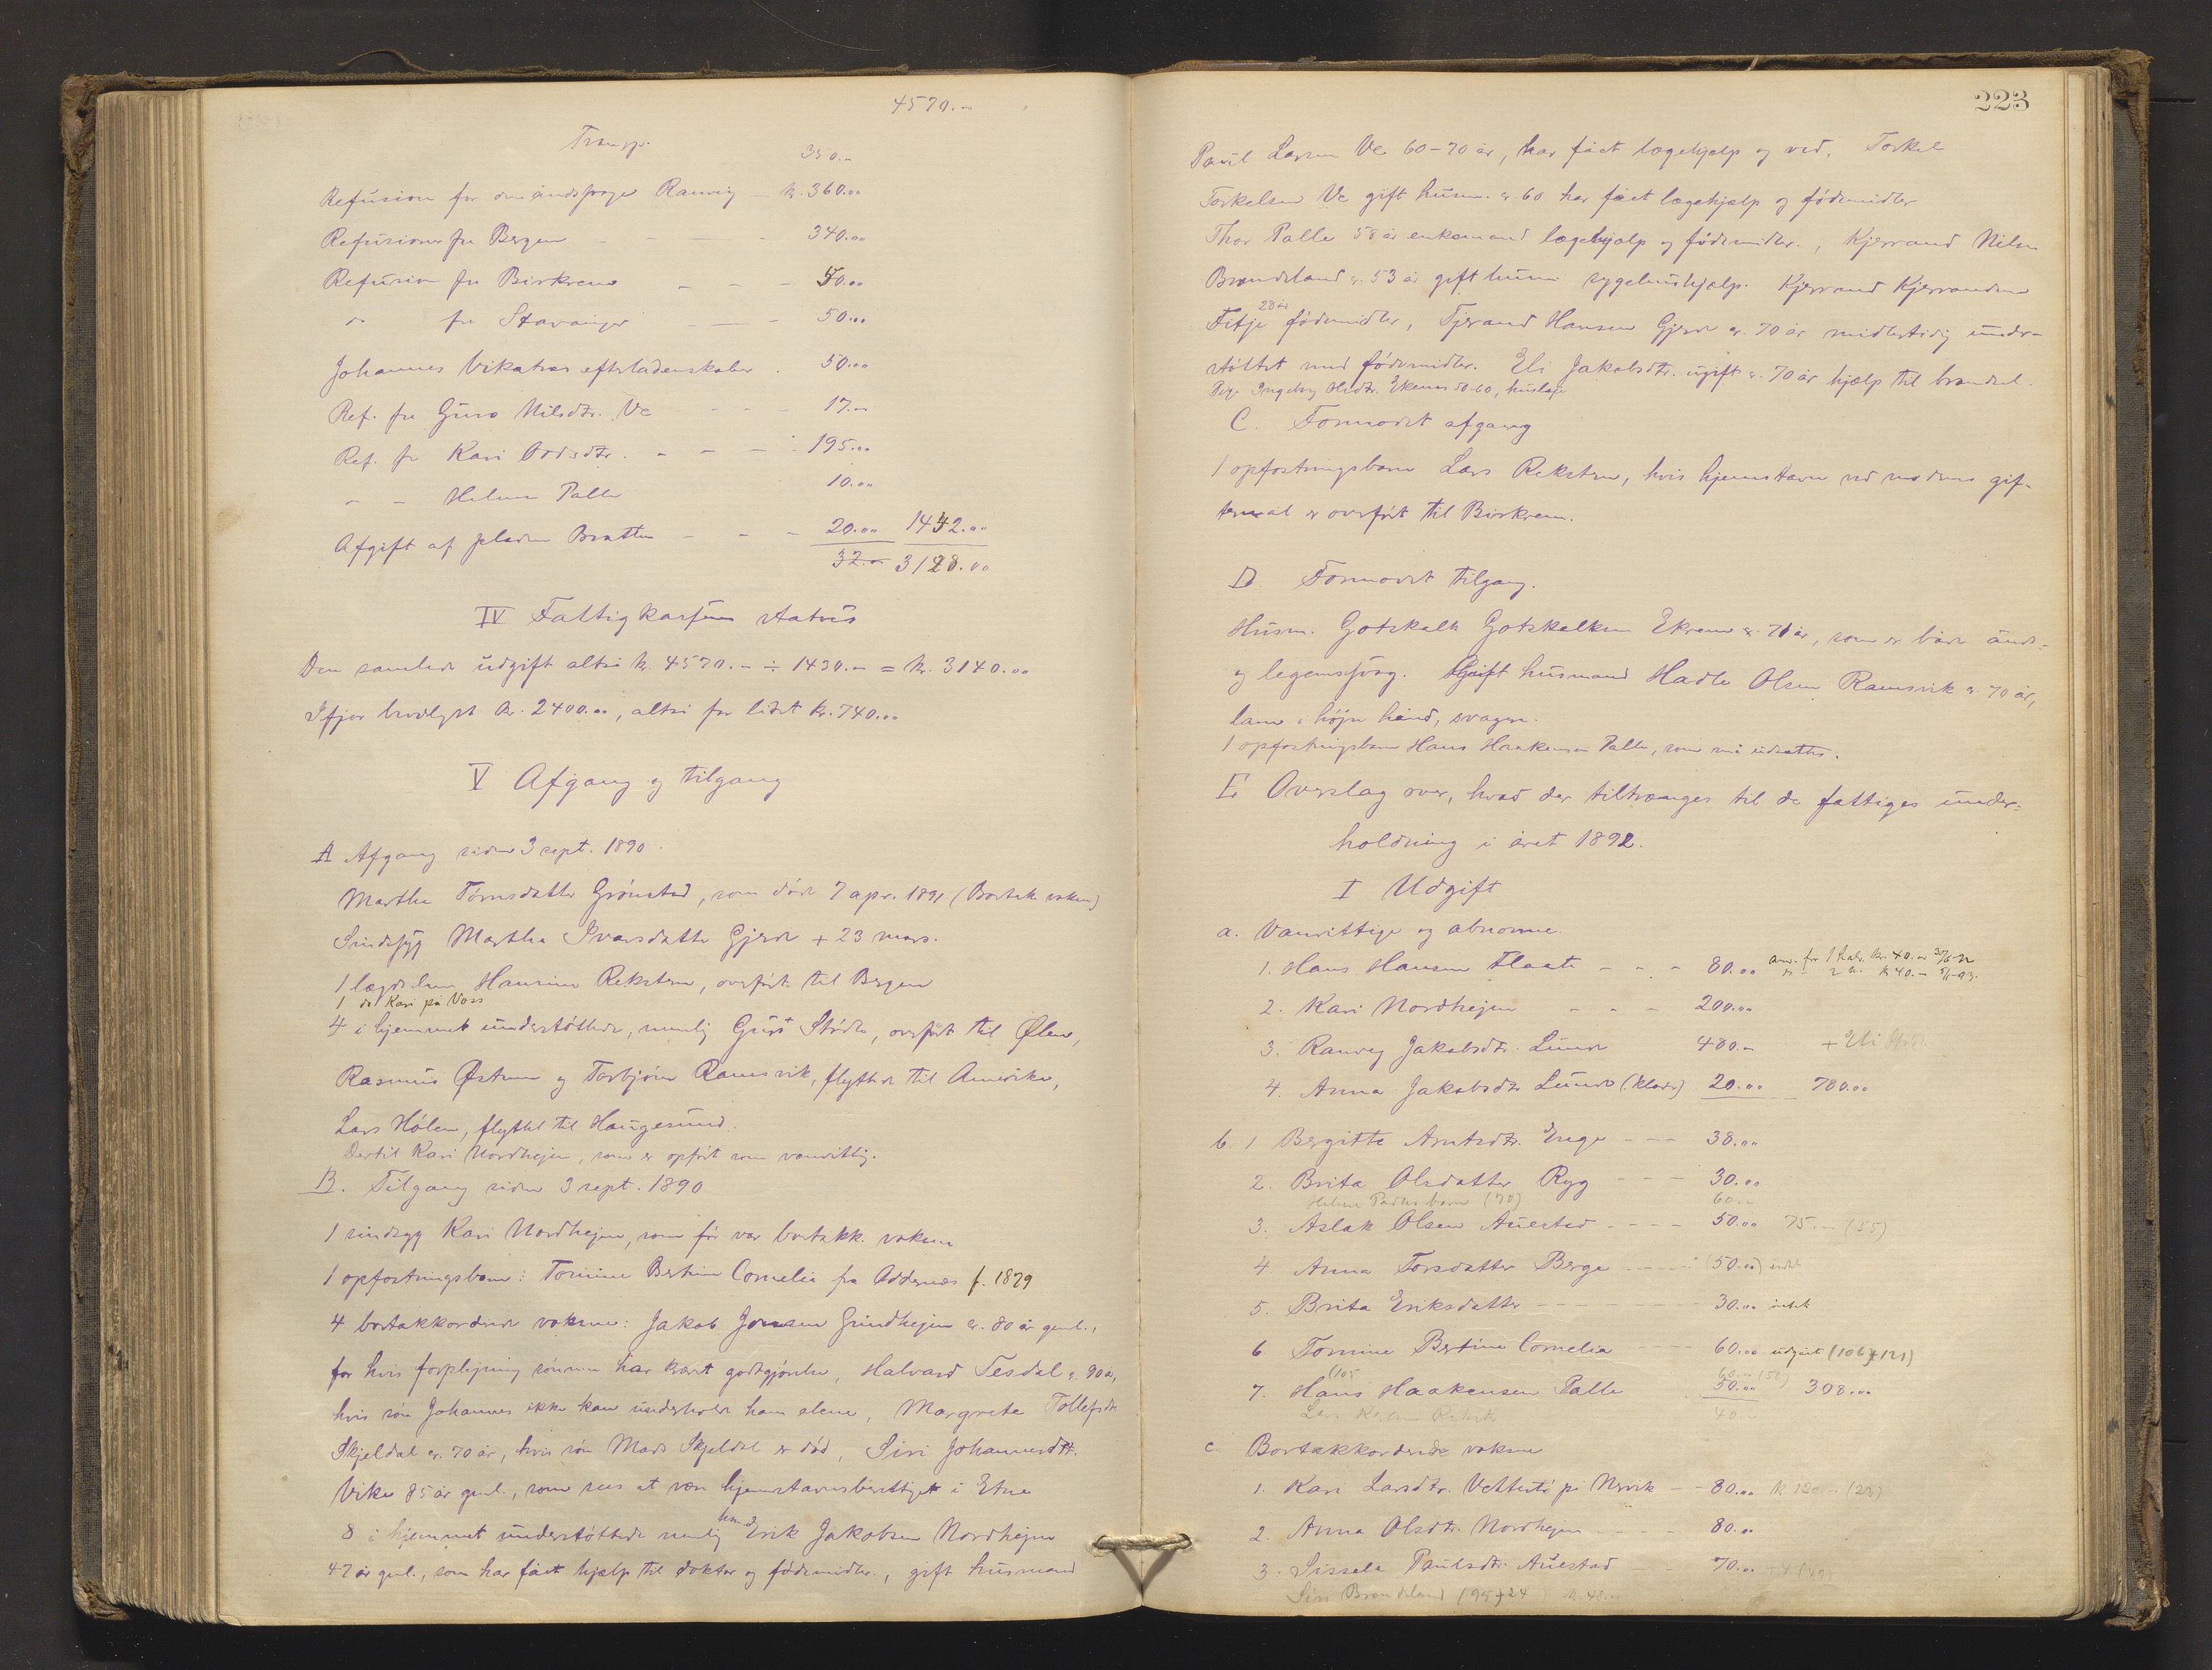 4570.-
Transp. 350.-
Refusion for den åndssvage Ranveig - kr. 360.00
Refusioner fra Bergen - - - - 340.00
Refusion fra Birkrem - - - 50.00
" fra Stavanger - - - 50.00
Johannes Vikatræs efterladenskaber . 50.00
Ref. fra Guro Nilsdtr. Ve - - - 17.00
Ref. fr Kari Oddsdtr. - - - - 195.00
" - Helene Palle 10.00
Afgift af pladsen Bratten - - - 20.00 1442.00
32.00 3128.00
IV Fattigkassens status
Den samlede udgift altså kr. 4570.- ÷ 1430.- = kr. 3140.00
Ifjor bevilget kr. 2400.00, altså for lidet kr. 740.00
V Afgang og tilgang
A Afgang siden 3 sept. 1890.
Martha Tørresdatter Grønstad, som døde 7 apr. 1891 (Bortak. voksen)
Sindssyg Martha Ivarsdatter Gjerde + 23 mars.
1 lægdslem Hansine Reksten, overført til Bergen
1 do Kari på Voss
4 i hjemmet understøttede, nemlig Guro Stødle, overført til Ølen,
Rasmus Østrem og Torbjørn Ramsvik, flyttede til Amerika,
Lars Hølen, flyttet til Haugesund.
Dertil Kari Nordhejen, som er opført som vanvittig.
B. Tilgang siden 3 sept. 1890
1 sindsyg Kari Nordhejen, som før var bortakk. voksen
1 opfostringsbarn: Tomine Bertine Cornelia fra Oddernes f. 1879
4 bortakkorderede voksne: Jakob Jonsen Grindhejm er. 80 år gml.,
for hvis forplejning sønnen har krævt godtgjørelse, Halvard Tesdal er 90 år,
hvis søn Johannes ikke kan underholde ham alene, Margrete Tollefsdtr.
Skjeldal er. 70 år, hvis søn Mads Skjeldal er død, Siri Johannesdtr.
Vike 85 år gml., som sees at være hjemstavnsberettiget i Etne
8 i hjemmet understøttede nemlig Erik Jakobsen Nordhejm
47 år gml., som har fået hjælp til doktor og fødemidler, gift husmand
223
Paul Larsen Ve 60-70 år, har fået lægehjælp og ved, Torkel
Torkelsen Ve gift husm. er 60 har fået lægehjælp og fødemidler
Thor Palle 58 år enkemand lægehjælp og fødemidler, Kjerrand Nilsen
Brandeland er. 53 år gift husm. sygehushjælp. Kjerrand Kjerrandsen
28 år
Fitje fødemidler, Tjerand Hansen Gjerde er. 70 år midlertidig under-
støttet med fødemidler. Eli Jakobsdtr. ugift er. 70 år hjælp til brændsel.
Pige Ingeborg Olsdtr. Ekrene 50-60, husleje
C. Formodet afgang
1 opfostringsbarn Lars Reksten, hvis hjemstavn ved moderens gif-
termål er overført til Birkrem.
D. Formodet tilgang.
Husm. Gotskalk Gotskalksen Ekrene er 71 år, som er både ånds-
og legemssvag. Gift husmand Hadle Olsen Ramsvik er. 70 år,
lam i højre hånd, svagsn.
1 opfostringsbarn Hans Haakensen Palle, som må udsættes.
E. Overslag over, hvad der tiltrænges til de fattiges under-
holdning i året 1892.
I Udgift
a. Vanvittige og abnorme.
1. Hans Hansen Flaate - - - 80.00 anv. for 1 halv. kr. 40.00
2. Kari Nordhejen - - - 200.00
3. Ranveig Jakobsdtr. Lunde 480.- + Eli
4. Anna Jakobsdtr. Lunde (klæder) 20.00 780.00
b. 1 Bergitte Arntsdtr. Enge - - - 38.00
2. Brita Olsdatter Ryg - - - 30.00
Helene Palles barn (70) 60.-
3. Aslak Olsen Auestad - - - - 50.00 75.- (55)
4. Anna Torsdatter Berge - - - - (50.00) intet
5. Brita Eriksdatter - - - - - 30.00 intet
6 Tomine Bertine Cornelia - - - 60.00 udgået (106+121)
7. Hans Haakensen Palle 50.00 308.00
40.-
c Bortakkorderede voksne
1. Kari Larsdtr. Vettestø på Nervik - - 80.00
2. Anna Olsdtr. Nordhejen - - - - 80.00
3. Sissela Paulsdtr. Auestad - - 70.00
Siri Brandeland (95+24)